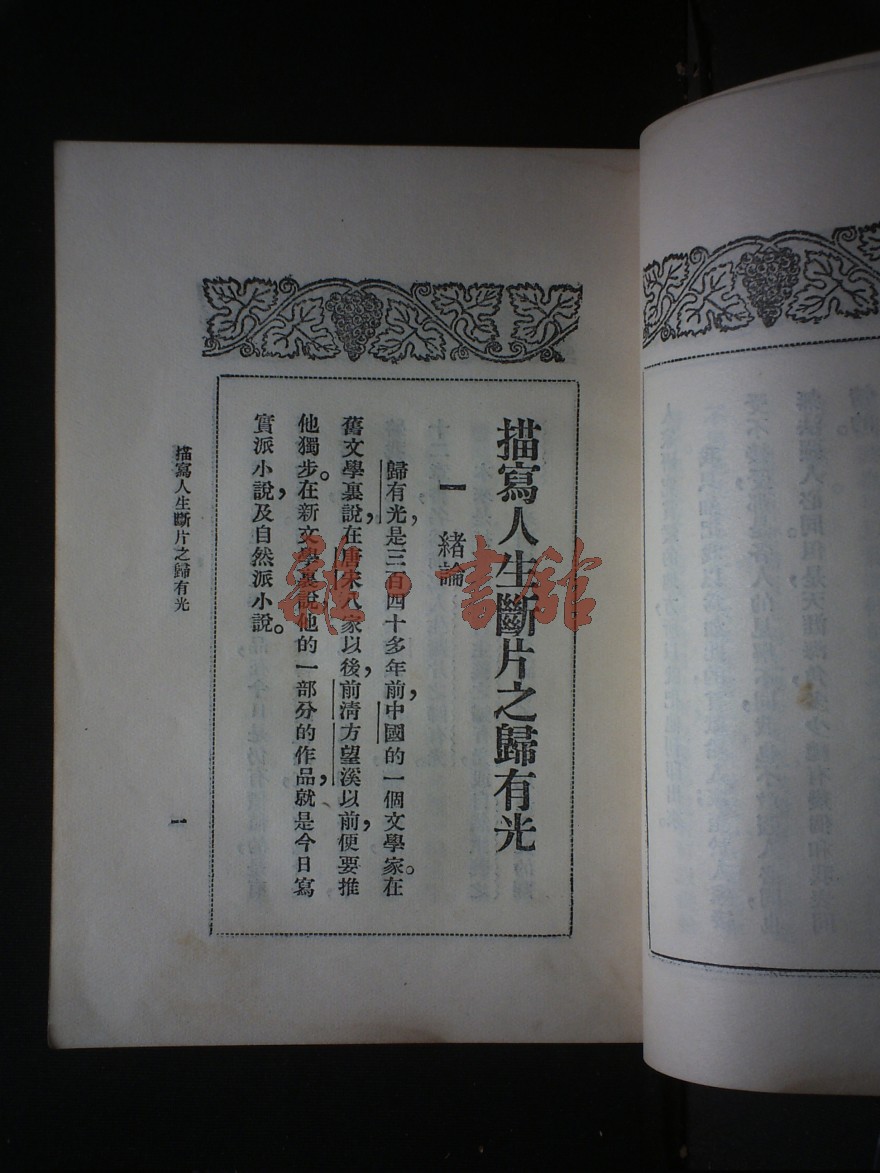 描寫人生斷片之歸有光
一 緒論
歸有光，是三百四十多年前，中國的一個文學家。在
舊文學裏，說在唐宋八家以後，前清方望溪以前，便要推
他獨步。在新文學裏說他的一部分的作品，就是今日寫
實派小說，及自然派小說。
描寫人生斷片之歸有光
一
雜·書館